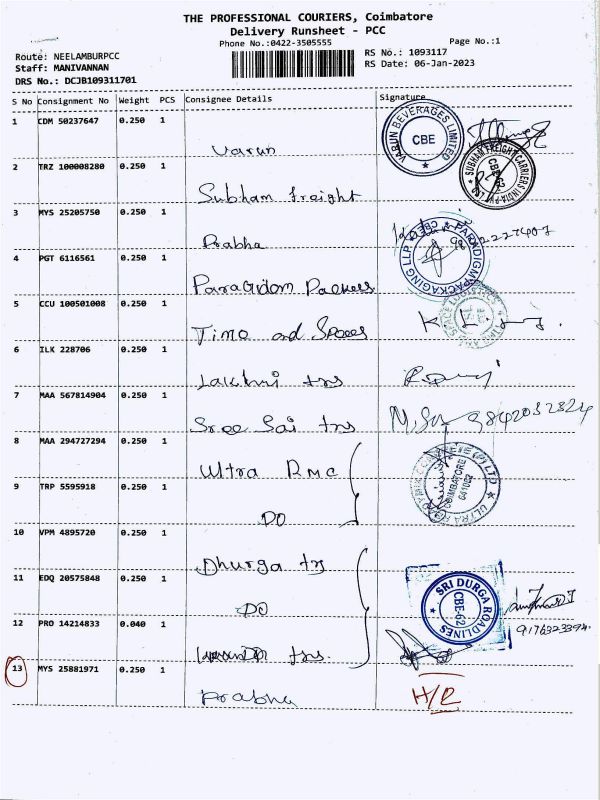 THE PROFESSIONAL COURIERS, Coimbatore
Delivery Runsheet - PCC
Phone No.:0422-3505555
Page No.:1
Route: NEELAMBURPCC
RS No.: 1093117
Staff: MANIVANNAN
RS Date: 06-Jan-2023
DRS No.: DCJB109311701
S No Consignment No Weight PCS Consignee Details Signature
1 CDM 50237647 0.250 1
Varun
VARUN BEVERAGES LIMITED
CBE
2 TRZ 100008280 0.250 1
Subham freight
SUBHAM FREIGHT CARRIERS INDIA PVT LTD
CBE-62
3 MYS 25205750 0.250 1
Prabha
4 PGT 6116561 0.250 1
Paragidom Packers
PARADIGM PACKAGING LLP
CBE
5 CCU 100501008 0.250 1
Time and Spaces
6 ILK 228706 0.250 1
Lakshmi tns
7 MAA 567814904 0.250 1
Sree Sai tns
9842032824
8 MAA 294727294 0.250 1
Ultra RMC
COIMBATORE
641062
9 TRP 5595918 0.250 1
DO
10 VPM 4895720 0.250 1
Dhurga tns
11 EDQ 20575848 0.250 1
DO
SRI DURGA ROADLINES
CBE-62
12 PRO 14214833 0.040 1
tns.
13 MYS 25881971 0.250 1
Prabha